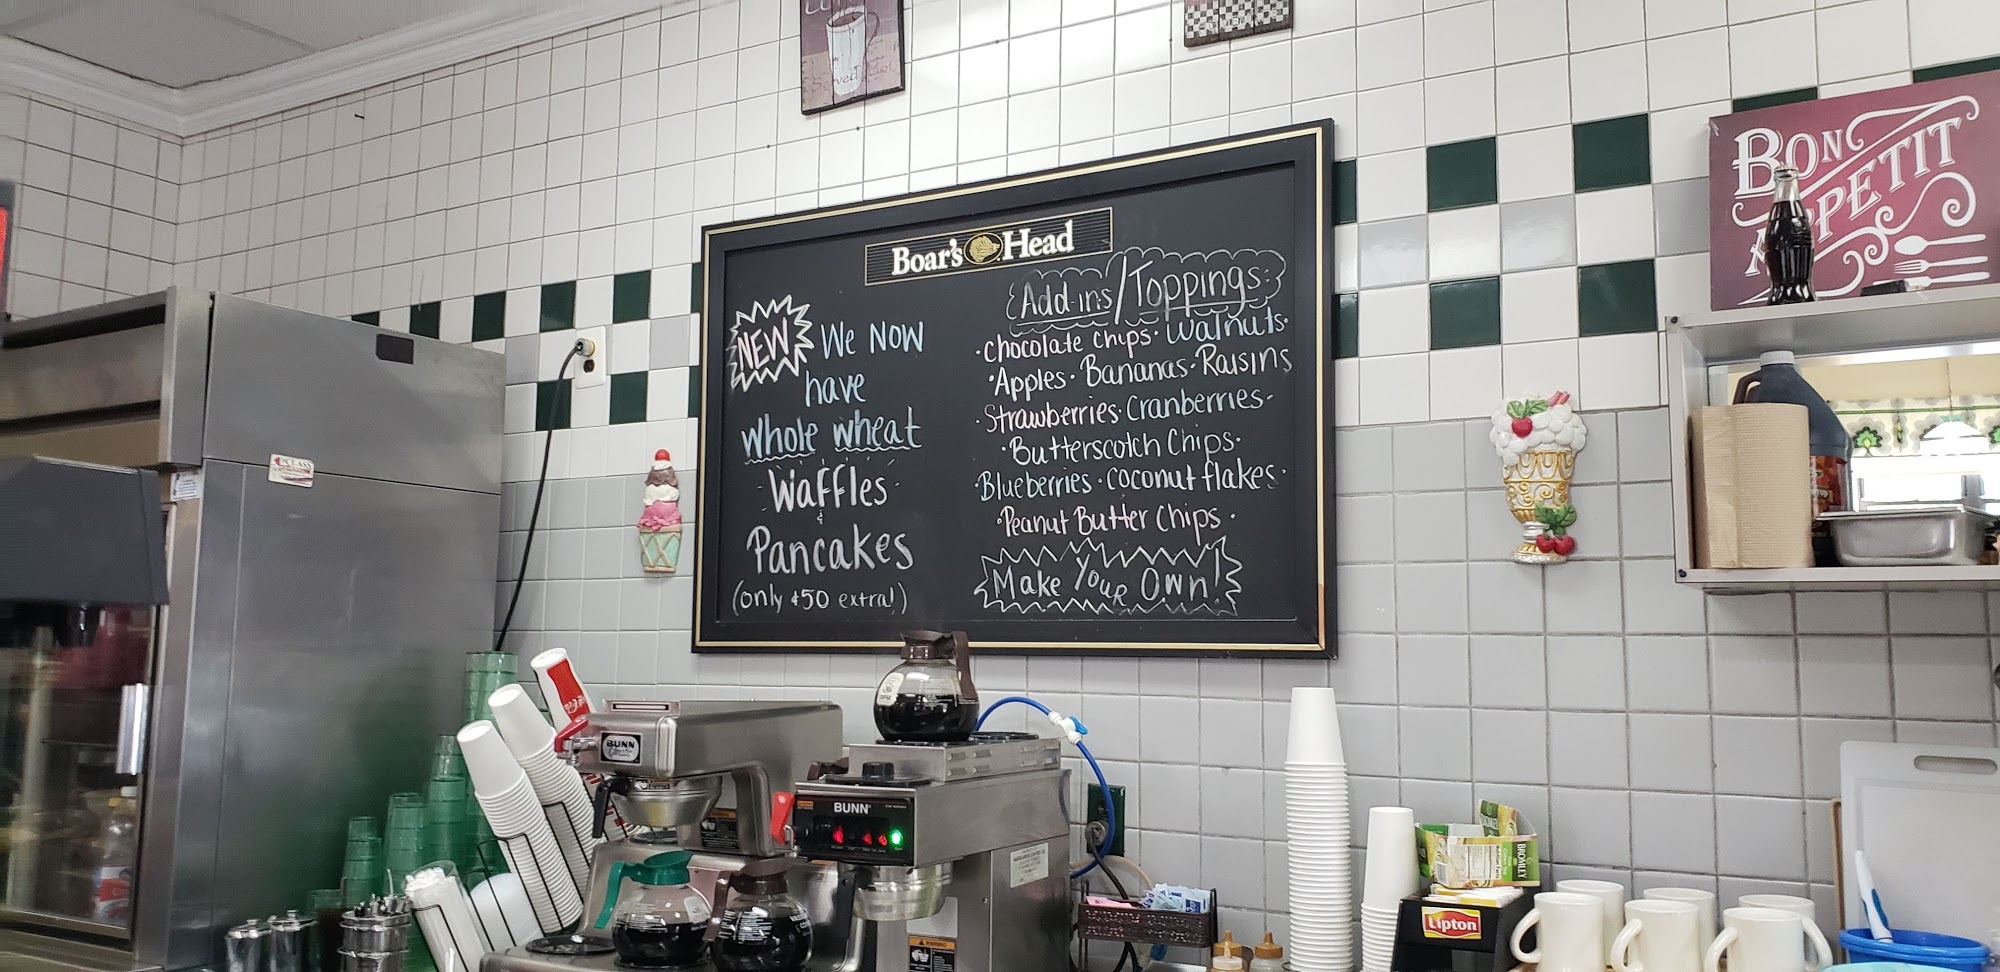 Served Hot
BON
APPETIT
Boar's Head
NEW We Now
have
whole wheat
Waffles
&
Pancakes
(only $.50 extra!)
Add-ins/Toppings:
•Chocolate Chips•Walnuts•
•Apples•Bananas•Raisins
•Strawberries•Cranberries•
•Butterscotch Chips•
•Blueberries•coconut flakes•
•Peanut Butter Chips•
Make Your Own!
BUNN
BUNN
BROMLEY
Lipton
WARNING